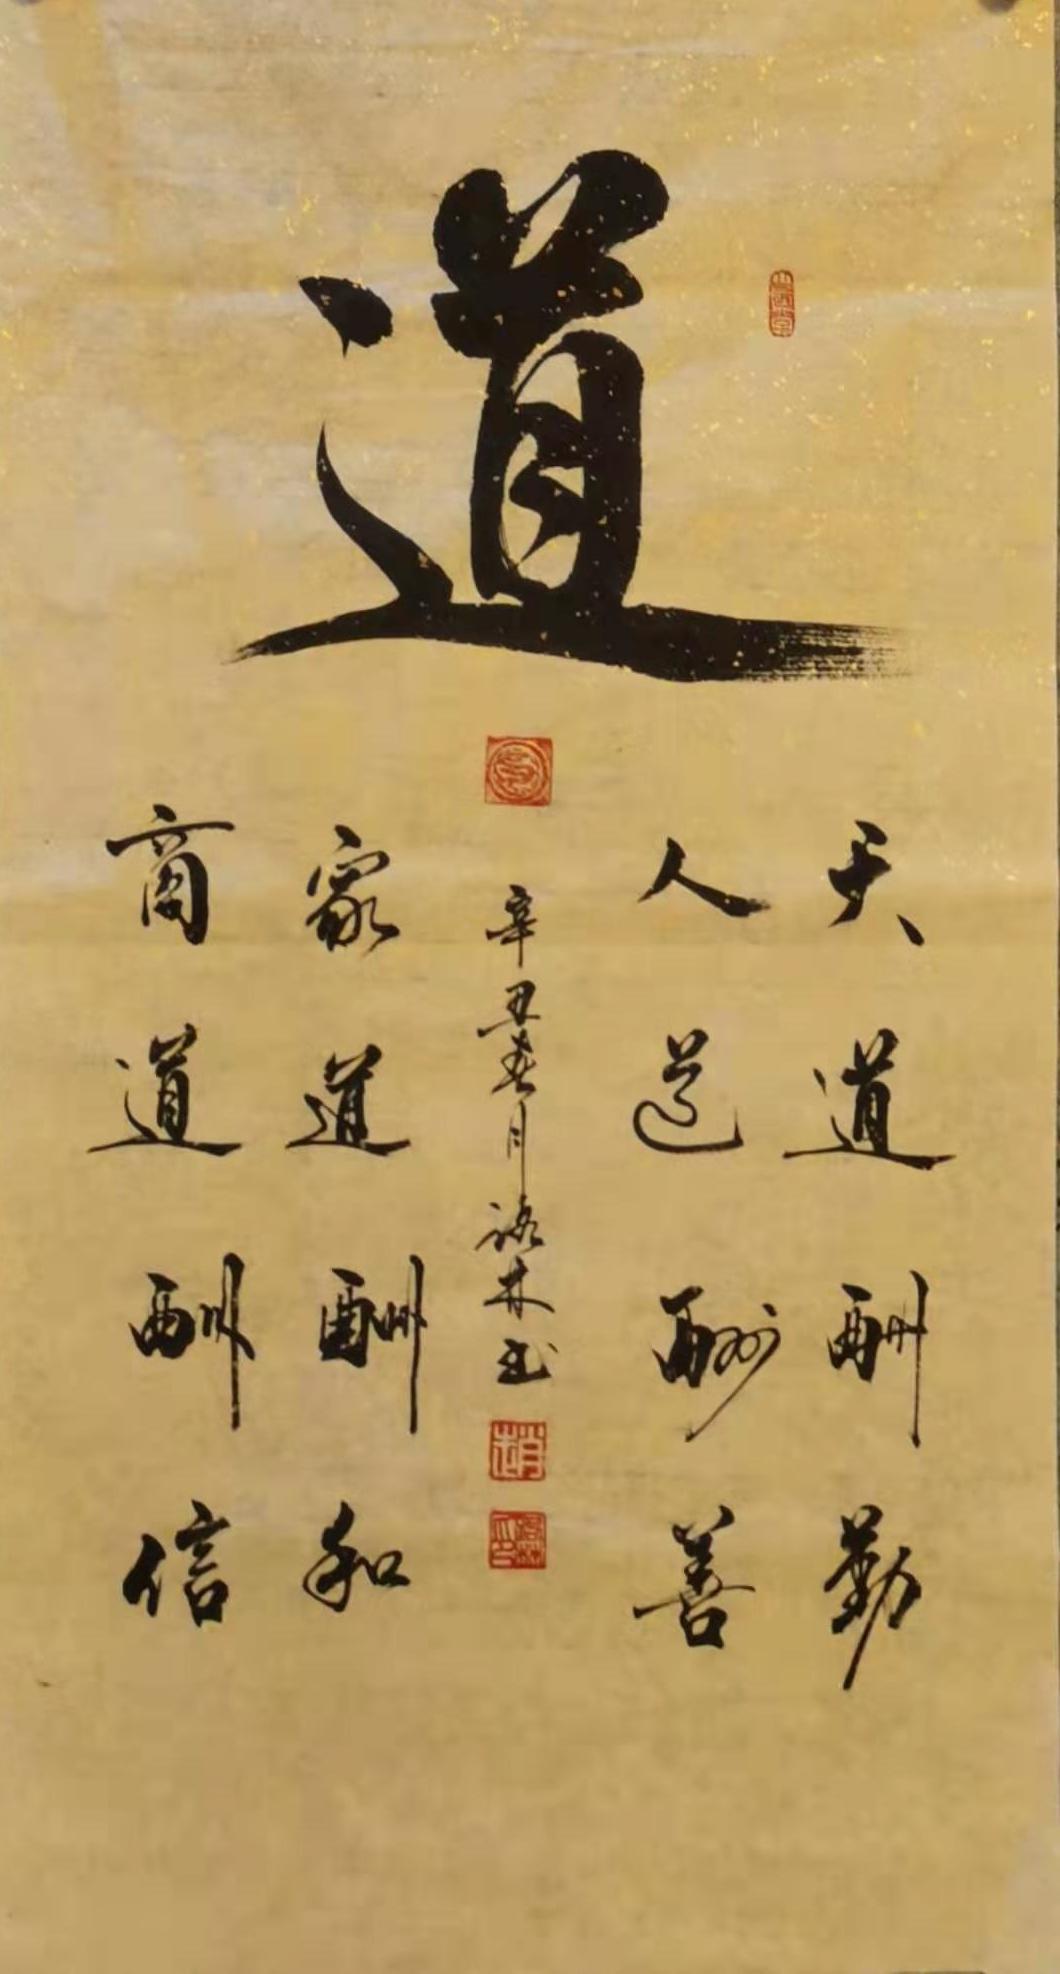 道
天道酬勤
人道酬善
辛丑春月
林书
趙
家道酬和
商道酬信